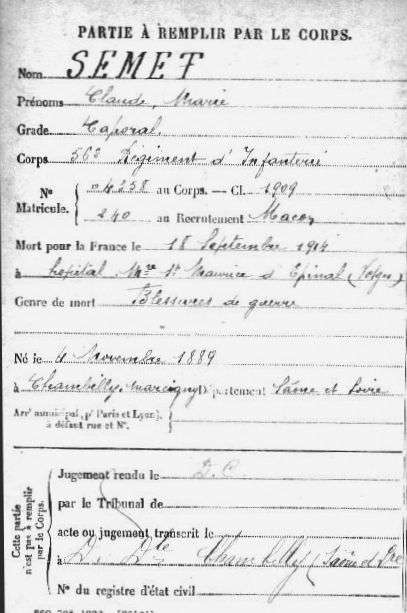 PARTIE À REMPLIR PAR LE CORPS.
Nom SEMET
Prénoms Claude, Marie
Grade Caporal
Corps 56e Régiment d'Infanterie
Nº Matricule. 04238 au Corps. — Cl. 1909
240 au Recrutement Macon
Mort pour la France le 18 Septembre 1914
à hopital Mre St Maurice d'Epinal (Vosges)
Genre de mort Blessures de guerre
Né le 4 Novembre 1889
à Chambilly, Marcigny Département Saône et Loire
Arrt municipal (pr Paris et Lyon),
à défaut rue et Nº.
Cette partie n'est pas à remplir par le Corps.
Jugement rendu le D.C.
par le Tribunal de
acte ou jugement transcrit le
à D. Dle Chambilly (Saône et Lre
Nº du registre d'état civil